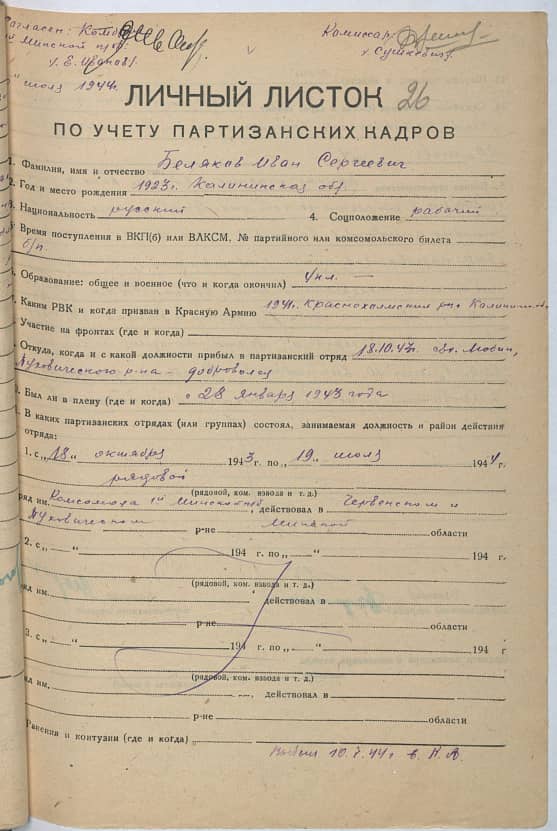 Согласен: Комбриг
Минской
Комиссар
т. Е. Иванов
т. Сушкевич
" июля 1944г
ЛИЧНЫЙ ЛИСТОК 26
ПО УЧЕТУ ПАРТИЗАНСКИХ КАДРОВ
1. Фамилия, имя и отчество Беляков Иван Сергеевич
2. Год и место рождения 1923г. Калининская обл.
3. Национальность русский 4. Соцположение рабочий
Время поступления в ВКП(б) или ВЛКСМ, № партийного или комсомольского билета
б/п
Образование: общее и военное (что и когда окончил) 4 кл. —
Каким РВК и когда призван в Красную Армию 1941г. Краснохолмским р-на Калининск.
Участие на фронтах (где и когда)
Откуда, когда и с какой должности прибыл в партизанский отряд 18.10.43г.
Пуховического р-на — доброволся
Был ли в плену (где и когда) с 28 января 1943 года
В каких партизанских отрядах (или группах) состоял, занимаемая должность и район действия
отряда:
1. с „18“ октября 1943 г. по „19“ июля 1944 г.
рядовой
(рядовой, ком. взвода и т. д.)
ряд им. Комсомола 1й Минской бр, действовал в Червенском и
Пуховическом р-не Минской области
2. с „ “ 194 г. по „ “ 194 г.
(рядовой, ком. взвода и т. д.)
ряд им. , действовал в
р-не области
3. с „ “ 194 г. по „ “ 194 г
(рядовой, ком. взвода и т. д.)
ряд им. , действовал в
р-не области
Ранения и контузии (где и когда)
Выбыл 10.7.44г в К.А.